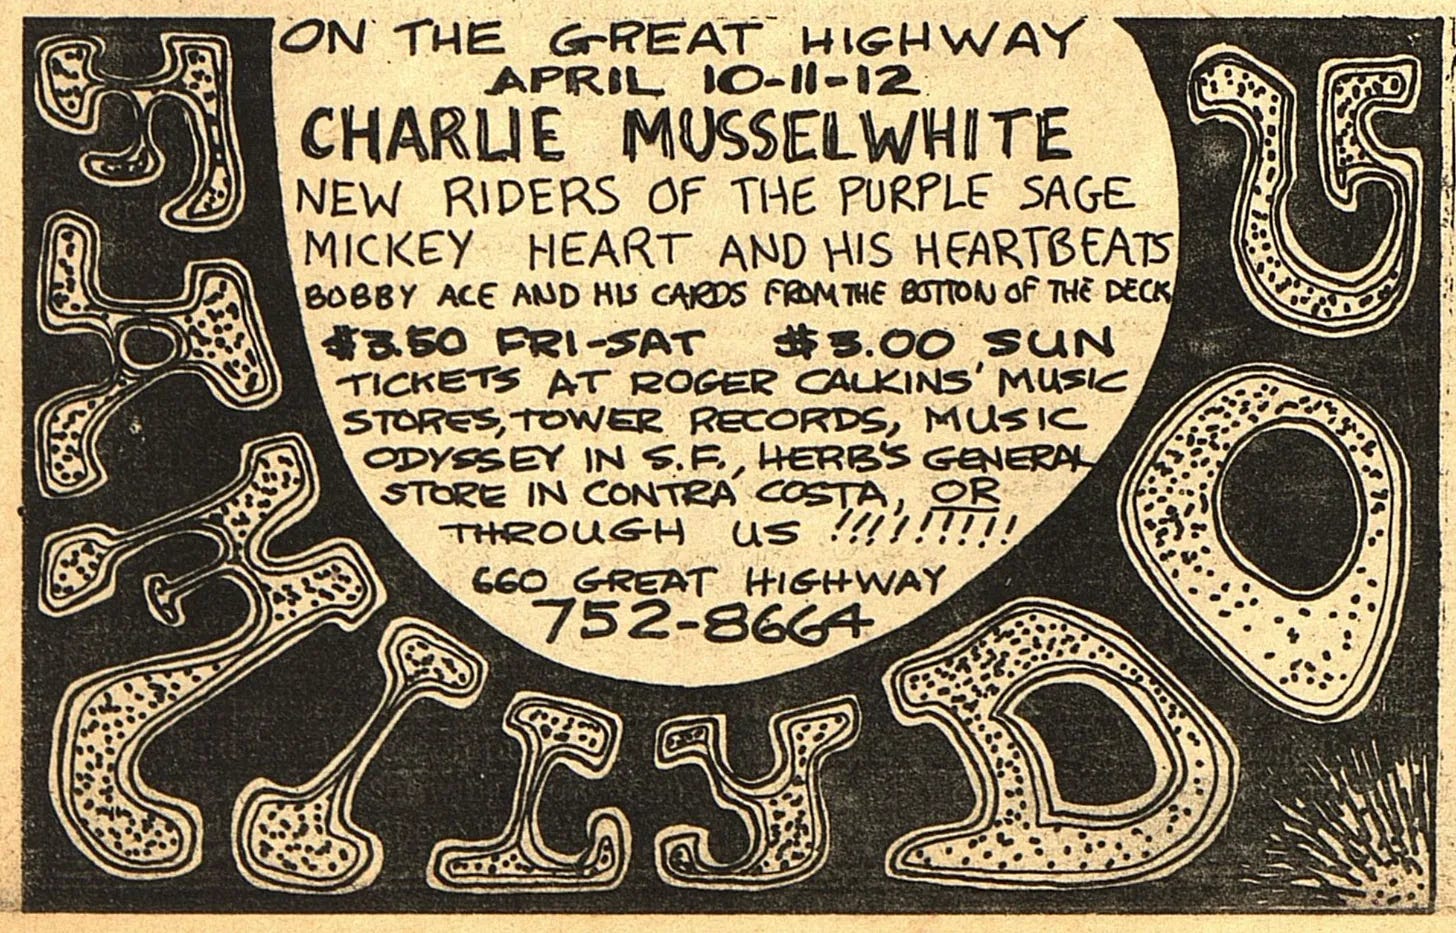 ON THE GREAT HIGHWAY
APRIL 10-11-12
CHARLIE MUSSELWHITE
NEW RIDERS OF THE PURPLE SAGE
MICKEY HEART AND HIS HEARTBEATS
BOBBY ACE AND HIS CARDS FROM THE BOTTON OF THE DECK
$3.50 FRI-SAT $3.00 SUN
TICKETS AT ROGER CALKINS' MUSIC
STORES, TOWER RECORDS, MUSIC
ODYSSEY IN S.F., HERB'S GENERAL
STORE IN CONTRA COSTA, OR
THROUGH US !!!!!!!!!
660 GREAT HIGHWAY
752-8664
FAMILY DOG